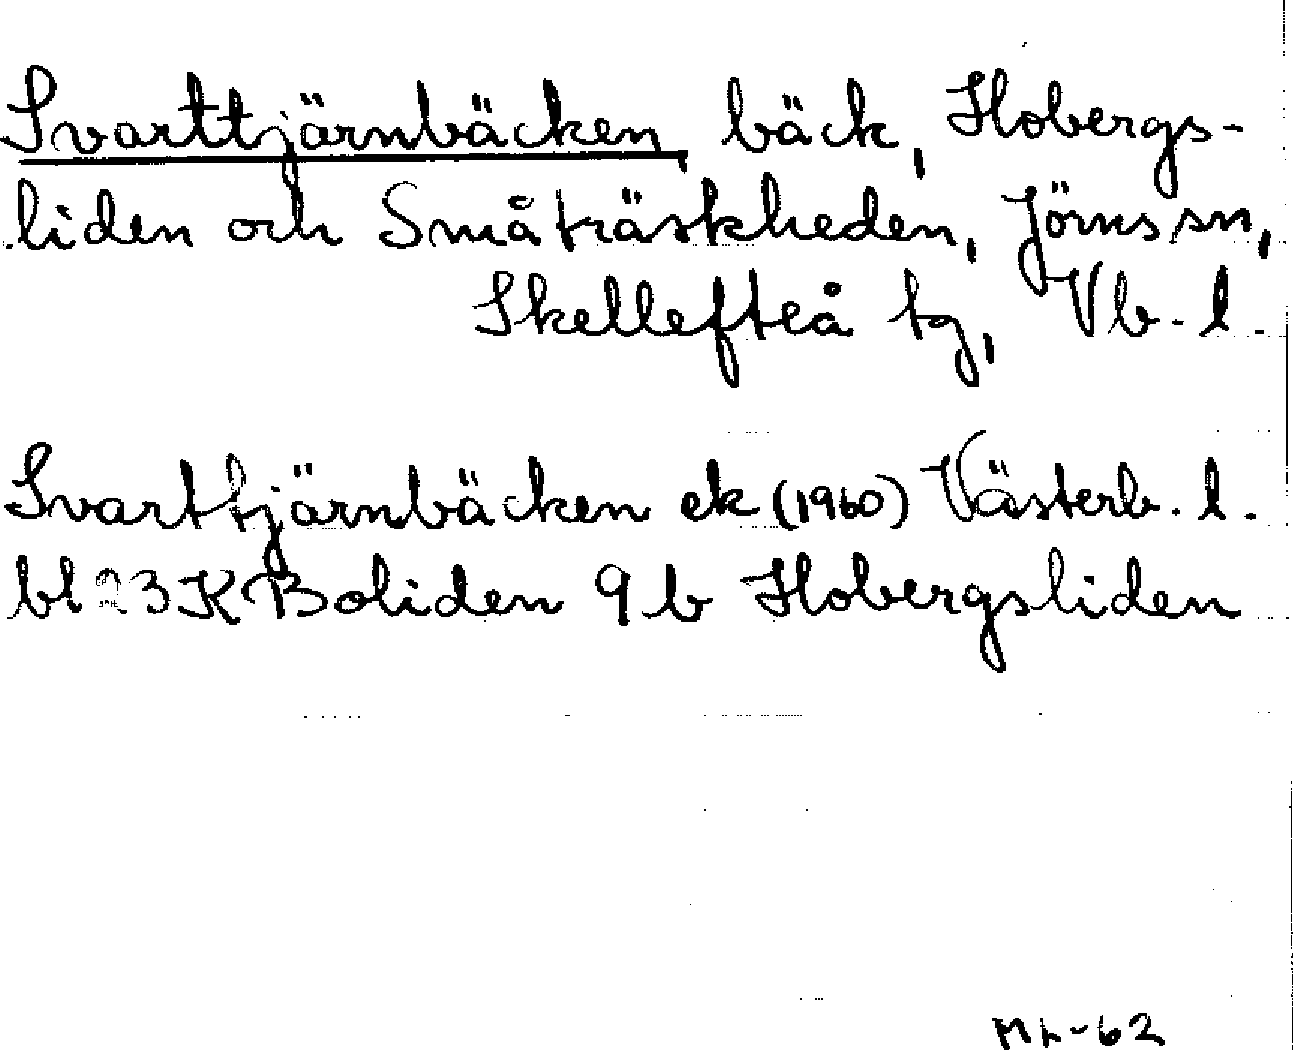 Svarttjärnbäcken, bäck, Hobergs-
liden och Småträskheden, Jörns sn,
Skellefteå tg, Vb. l.
Svarttjärnbäcken ek (1960) Västerb. l.
bl 23K Boliden 9 b Hobergsliden
ML-62